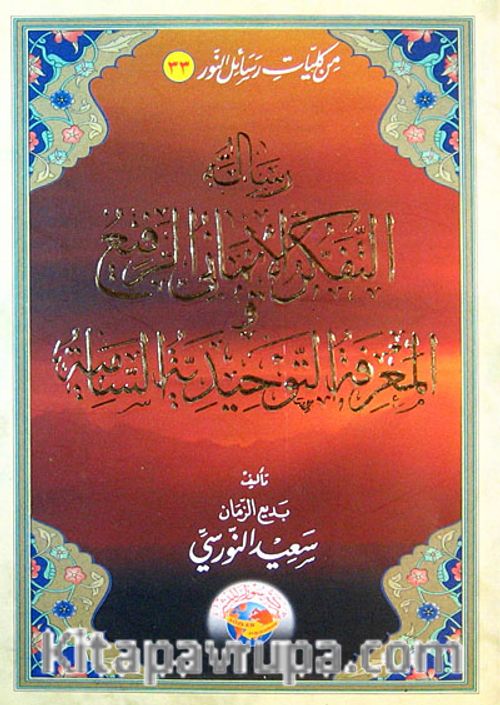 من كليات رسائل النور ٣٣
رسالة
التفكر الإيماني الرفيع
و
المعرفة التوحيدية السامية
تأليف
بديع الزمان
سعيد النورسي
kitapavrupa.com